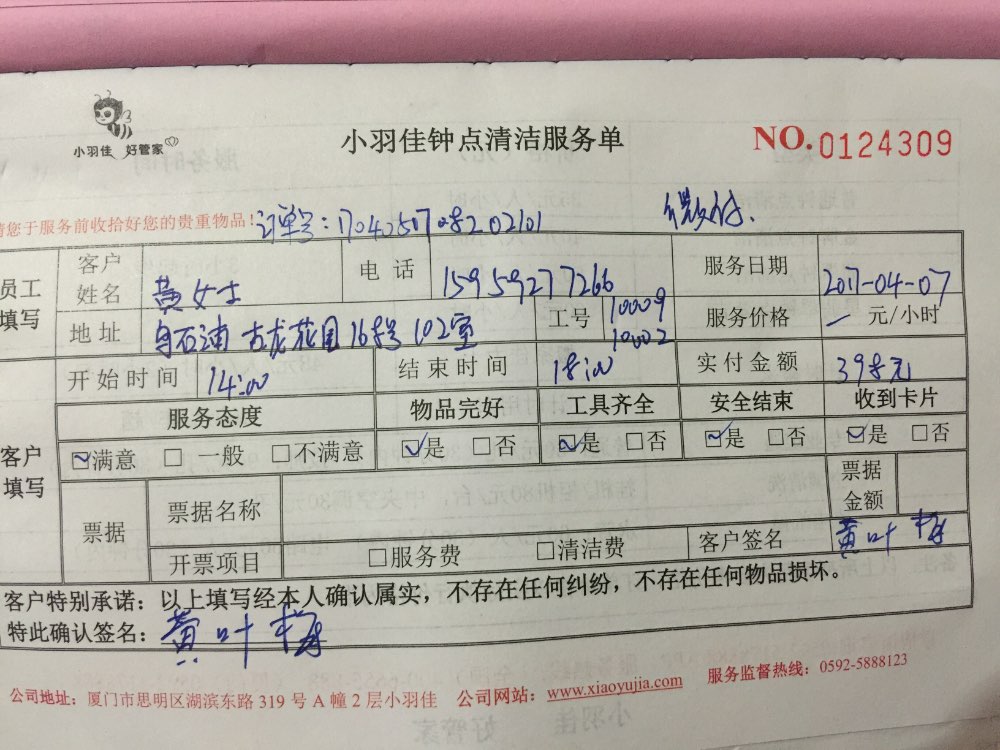 小羽佳 好管家
小羽佳钟点清洁服务单
NO.0124309
请您于服务前收拾好您的贵重物品！订单号：1704250728202101 微付
员工填写 客户姓名 黄女士 电话 15959277266 服务日期 2017-04-07
地址 乌石浦 古龙花园16号 102室 工号 10009 10002 服务价格 一 元/小时
开始时间 14:00 结束时间 18:00 实付金额 398元
客户填写 服务态度 物品完好 工具齐全 安全结束 收到卡片
☑满意 □一般 □不满意 ☑是 □否 ☑是 □否 ☑是 □否 ☑是 □否
票据 票据名称 票据金额
开票项目 □服务费 □清洁费 客户签名 黄叶梅
客户特别承诺：以上填写经本人确认属实，不存在任何纠纷，不存在任何物品损坏。
特此确认签名：黄叶梅
公司地址：厦门市思明区湖滨东路 319 号 A 幢 2 层小羽佳 公司网站：www.xiaoyujia.com 服务监督热线：0592-5888123